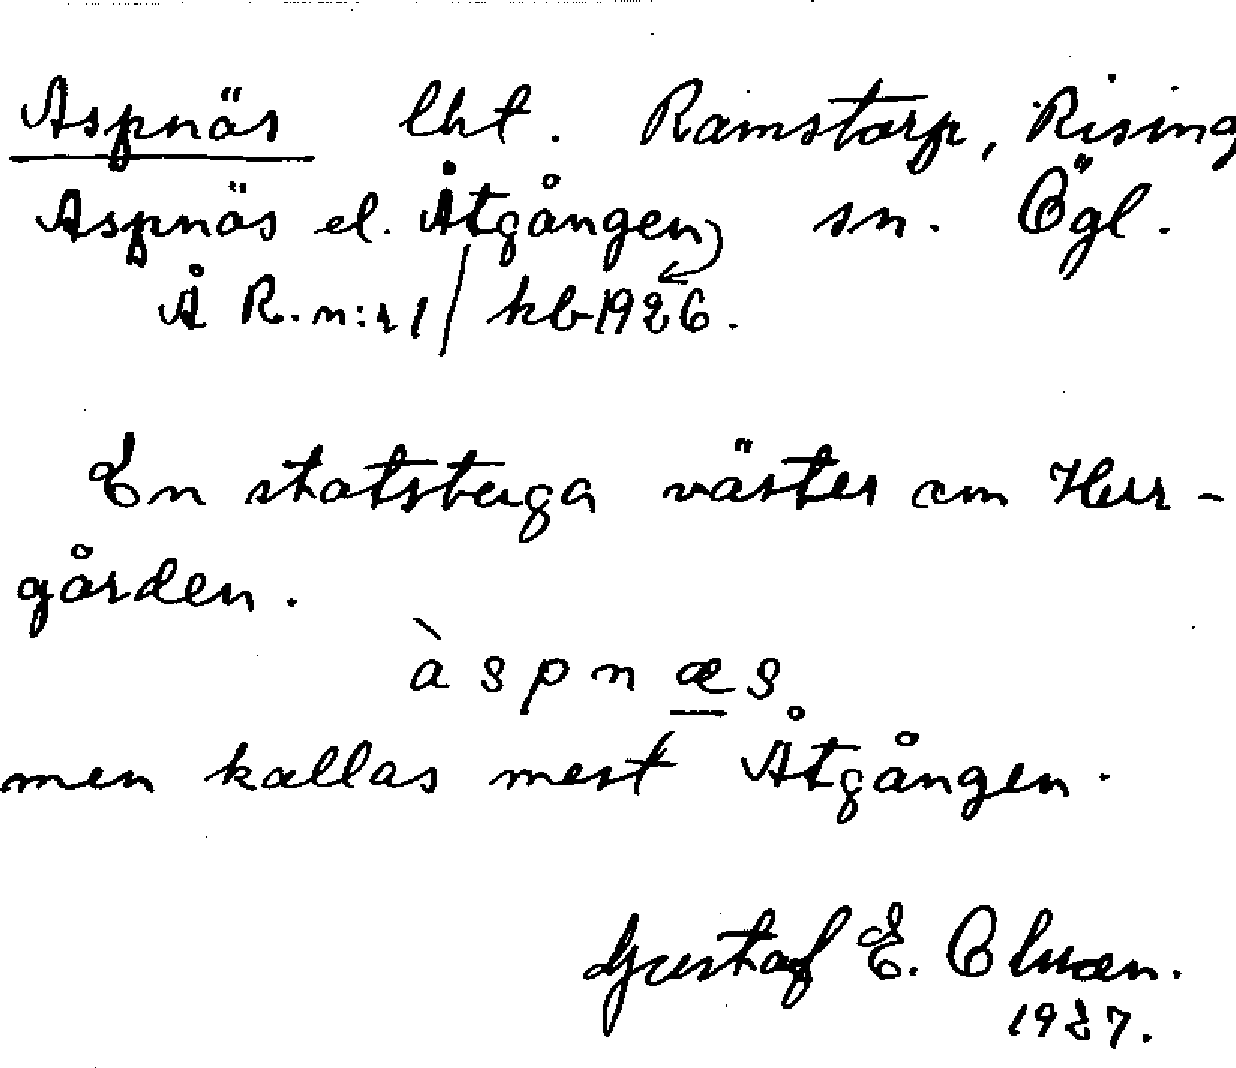 Aspnäs lht. Ramstorp, Risinge
Aspnäs el. Åtgången sn. Ögl.
Å R.n:r 1/ kb 1926.
En statstuga väster om Herr-
gården.
àspnæs
men kallas mest Åtgången.
Gustaf E.
1927.